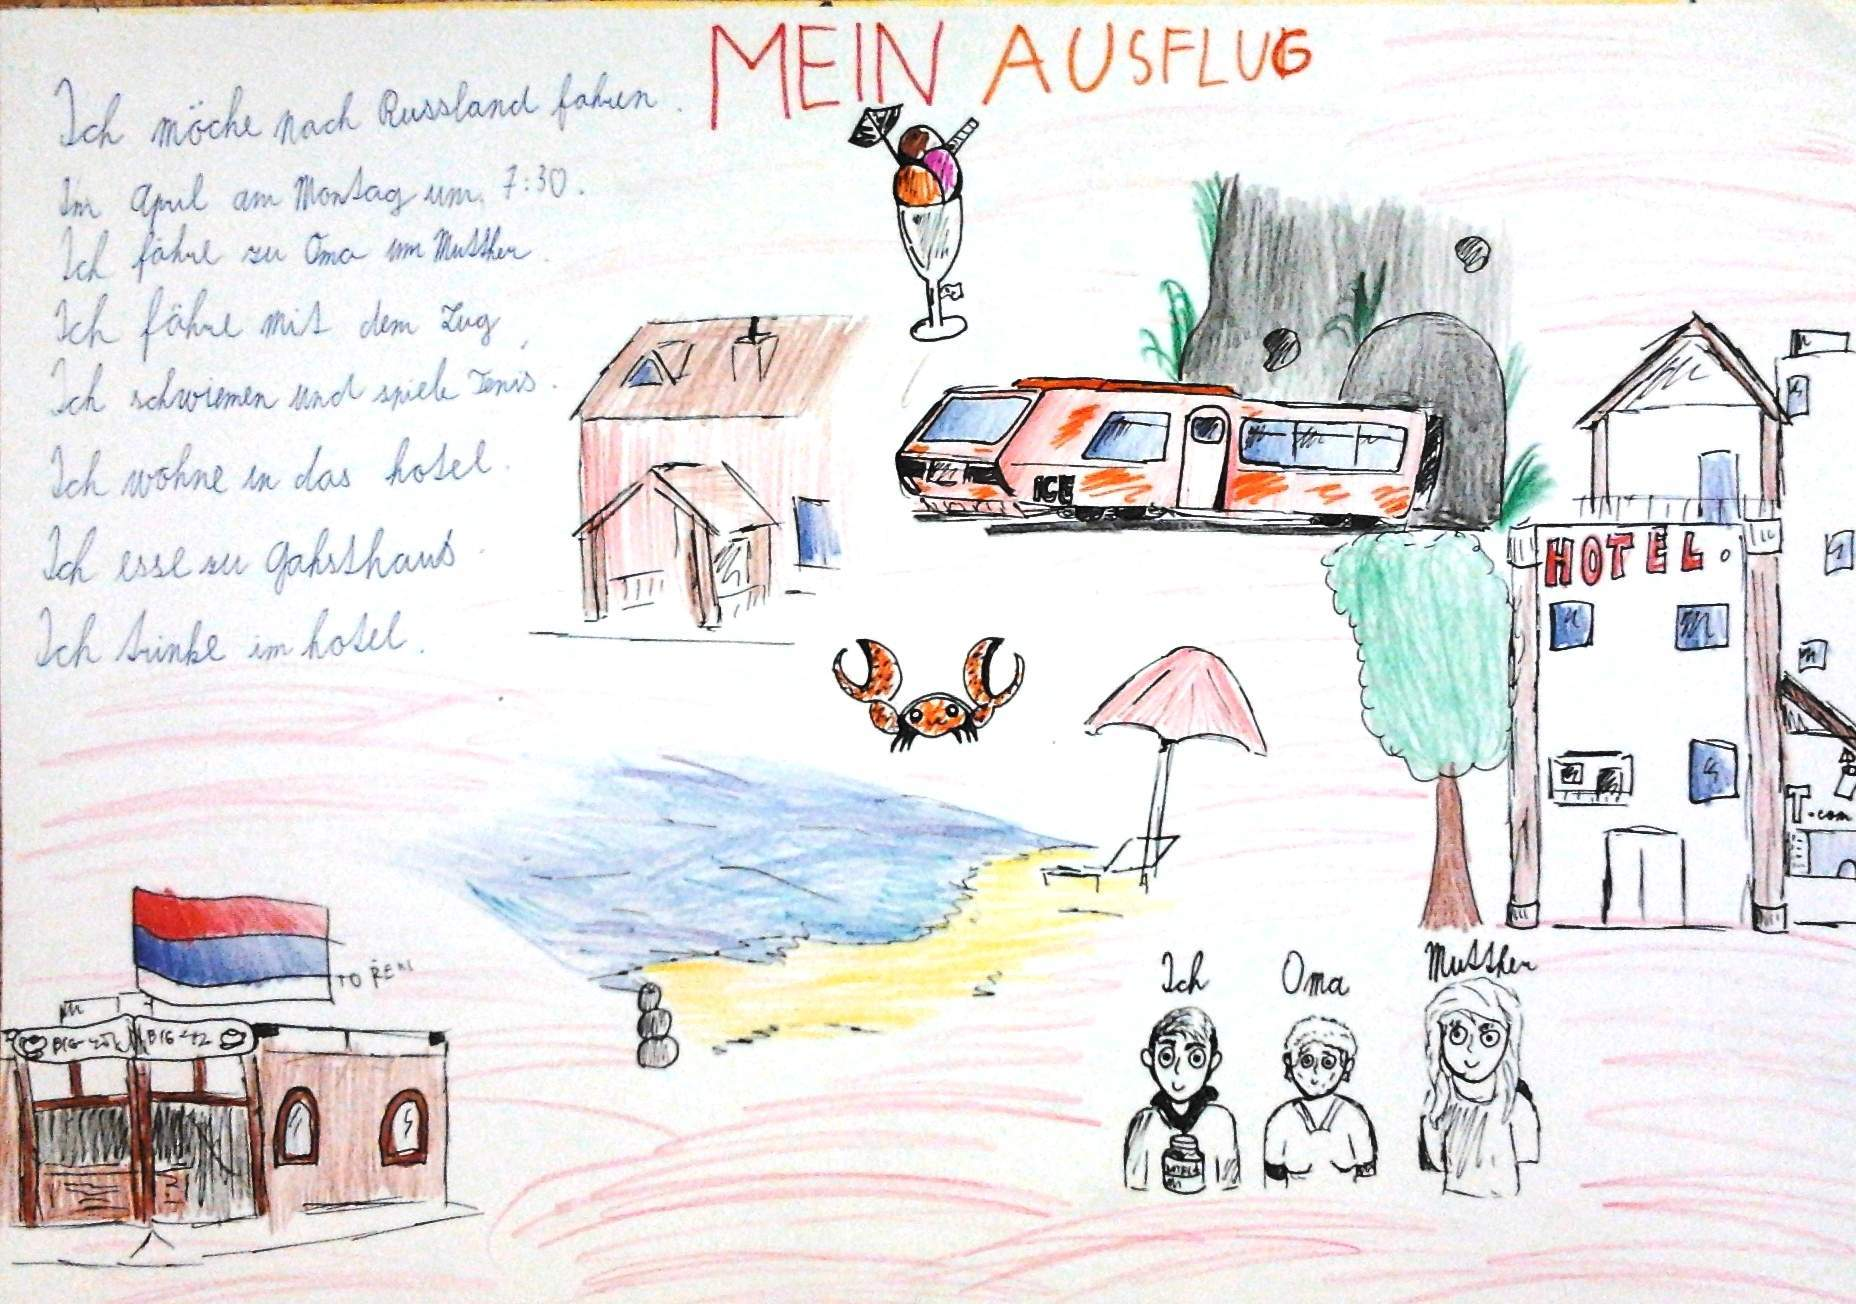 MEIN AUSFLUG
Ich möche nach Russland fahren.
Im April am Montag um 7:30.
Ich fähre zu Oma um Mutther.
Ich fähre mit dem Zug.
Ich schwiemen und spiele Tenis.
Ich wohne in das hotel.
Ich esse zu Gahsthaus.
Ich trinke im hotel.
ICE
HOTEL.
T.com
Ich
Oma
Mutther